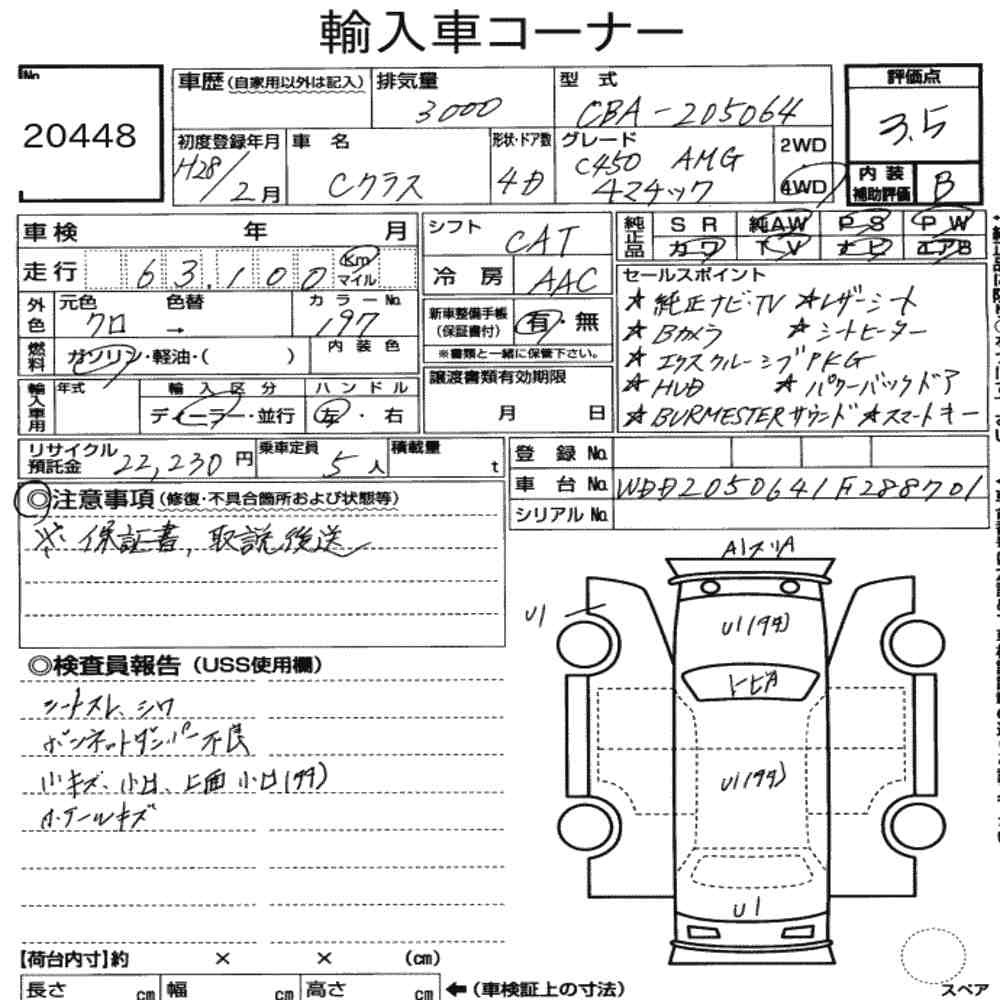 輸入車コーナー
No.
20448
車歴 (自家用以外は記入)
排気量
3000
型 式
CBA-205064
評価点
3.5
初度登録年月
H28/2月
車 名
Cクラス
形状・ドア数
4D
グレード
C450 AMG
4マチック
2WD
4WD
内 装
補助評価
B
車検 年 月
走行 63,100 Km
マイル
外色
元色 色替
クロ →
カラーNo.
197
燃料
ガソリン・軽油・( )
内 装 色
輸入車用
年式
輸 入 区 分
ディーラー・並行
ハ ン ド ル
左・右
シフト
CAT
冷 房
AAC
新車整備手帳
(保証書付)
有・無
※書類と一緒に保管下さい。
譲渡書類有効期限
月 日
純正品
S R 純AW P S P W
カワ T V ナビ エアB
セールスポイント
★純正ナビ・TV ★レザーシート
★Bカメラ ★シートヒーター
★エクスクルーシブPKG
★HUD ★パワーバックドア
★BURMESTERサウンド ★スマートキー
リサイクル
預託金
22,230円
乗車定員
5人
積載量
t
登 録 No.
車 台 No. WDD2050641F288701
シリアルNo.
◎注意事項 (修復・不具合箇所および状態等)
※ 保証書、取説後送
◎検査員報告 (USS使用欄)
シートスレ、シワ
ボンネットダンパー不良
小キズ、小凹、上面 小凹(ササ)
ホイールキズ
A1スリA
U1
U1(ササ)
トビA
U1(ササ)
U1
【荷台内寸】約 × × (cm)
長さ cm 幅 cm 高さ cm ←(車検証上の寸法)
スペア